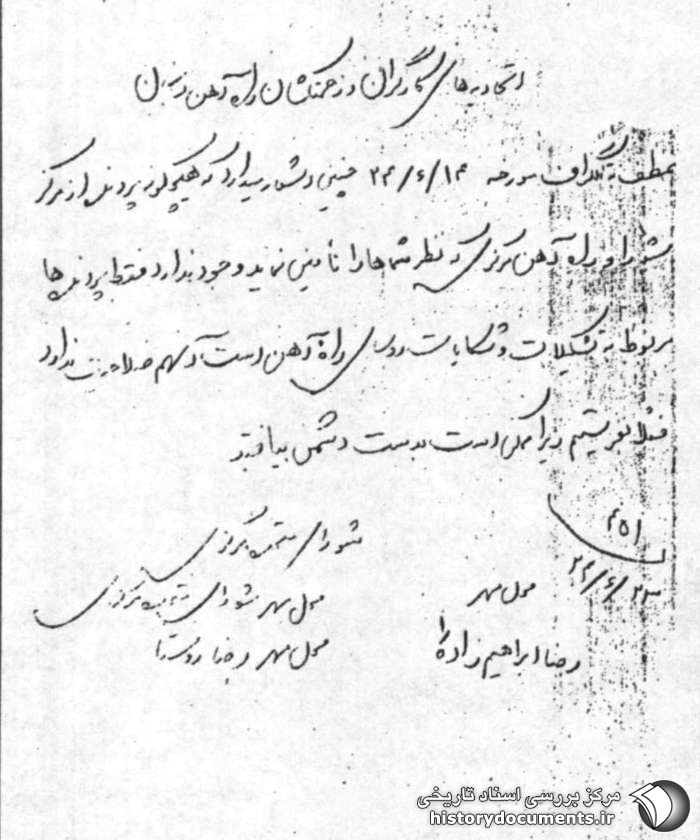 اتحادیه‌های کارگران و زحمتکشان راه آهن
عطف به تلگراف مورخه ۲۴/۶/۱۴ چنین اشعار میدارد که هیچگونه پرونده‌ای از مرکز
شورا و راه آهن مرکزی که نظر شماها را تامین نماید وجود ندارد فقط پرونده‌ها
مربوط به تشکیلات و شکایات روسای راه آهن است آنهم صلاحیت ندارد
فعلا بفرستیم زیرا ممکن است بدست دشمن بیافتد
شورای متحده مرکزی
۴۵۱
۲۴/۶/۲۳
محل مهر
محل مهر شورای متحده مرکزی
رضا ابراهیم زاده
محل مهر رضا روستا
مرکز بررسی اسناد تاریخی
historydocuments.ir